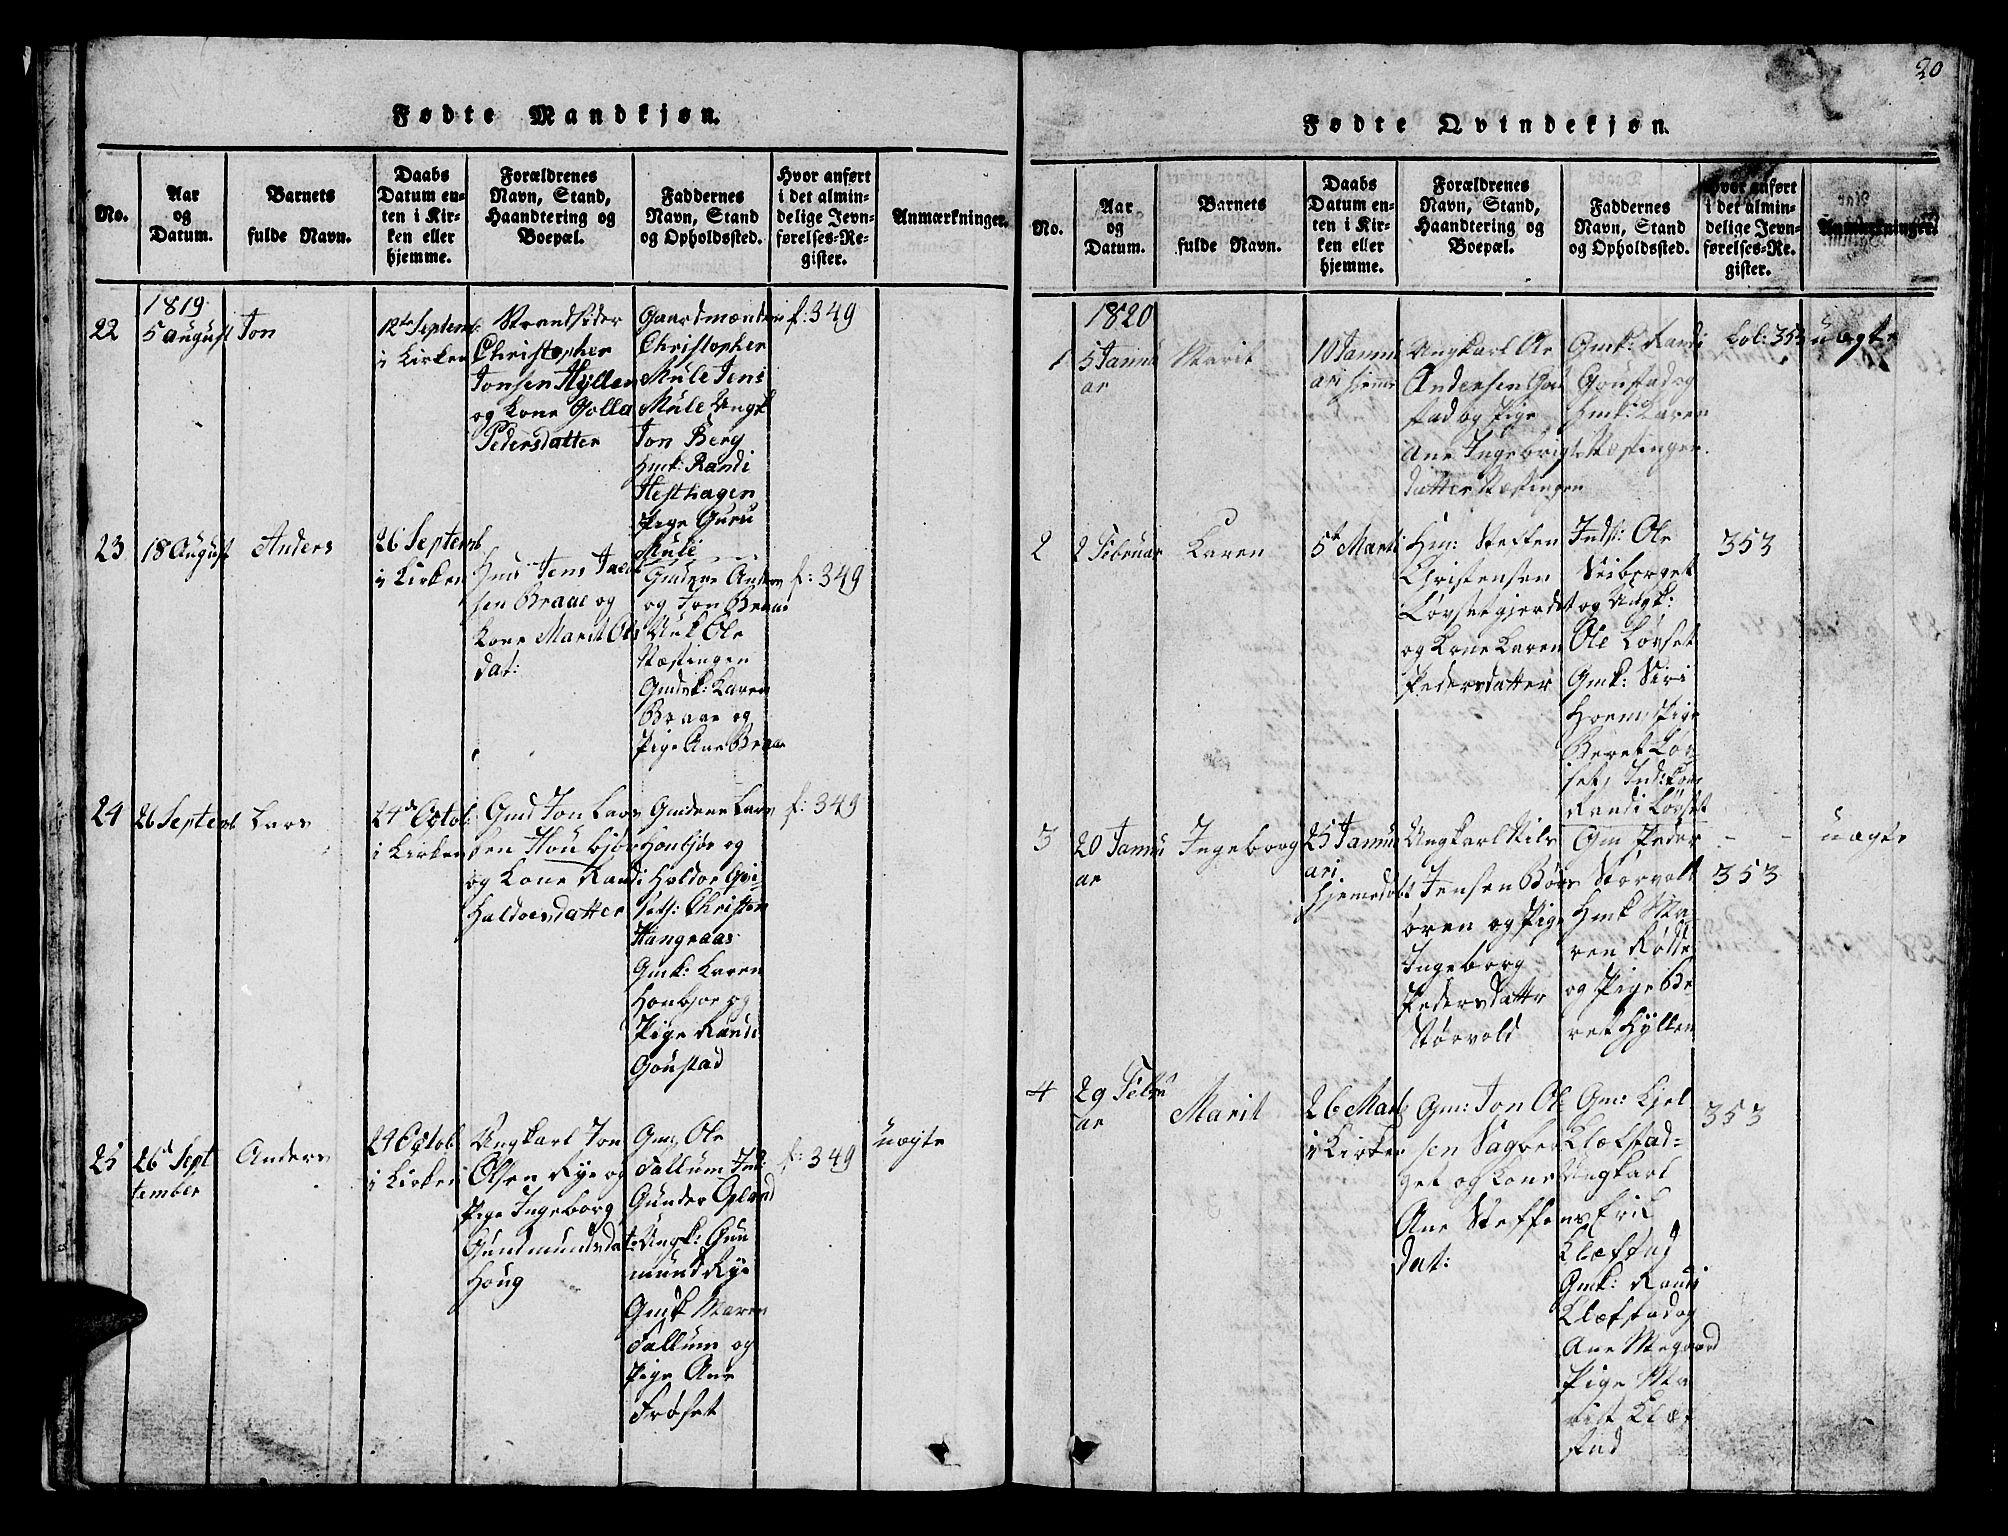 20
Fødte Mandkjøn.
No.
Aar
og
Datum.
Barnets
fulde Navn.
Daabs
Datum en-
ten i Kir-
ken eller
hjemme.
Forældrenes
Navn, Stand,
Haandtering og
Boepæl.
Faddernes
Navn, Stand
og Opholdssted.
Hvor anført
i det almin-
delige Jevn-
førelses-Re-
gister.
Anmærkninger.
1819
22
5 August
Jon
12te Septemb:
i Kirken
Strandsider
Christopher
Jonsen Hyllen
og Kone Golla
Pedersdatter
Gaardmændene
Christopher
Mule Jens
Mule Ungk
Jon Berg
Hmk: Randi
Hesthagen
Pige Guru
Mule
f: 349
23
18 August
Anders
26 Septemb
i Kirken
Jens Jacob
sen Braae og
Kone Marit Ols
dat:
Gmdene Anders
og Jon Braae
Ole
Næstingen
Gmdsk: Karen
Braae og
Pige Ane Braae
f: 349
24
26 Septemb
Lars
24de Octob:
i Kirken
Gmd Jon Lars
sen Houbjør
og Kone Randi
Haldorsdatter
Gmdene Lars
Houbjør og
Haldor
Christen
Hangraas
Gmk: Karen
Honbjør og
Pige Randi
Goustad
f: 349
25
26de Sept
tember
Anders
24 Octob
i Kirken
Ungkarl Jon
Olsen Rye og
Pige Ingeborg
Gundmundsdat:
Houg
Gm: Ole
Fallum Ind:
Gunder Opland
Ungk: Guu
mund Rye
Gmk Maren
Fallum og
Pige Ane
Frøset
f: 349
uægte
Fødte Qvindekjøn.
No.
Aar
og
Datum.
Barnets
fulde Navn.
Daabs
Datum en-
ten i Kir-
ken eller
hjemme.
Forældrenes
Navn, Stand,
Haandtering og
Boepæl.
Faddernes
Navn, Stand
og Opholdssted.
Hvor anført
i det almin-
delige Jevn-
førelses-Re-
gister.
Anmærkninger.
1820
1
5 Janu
ar
Marit
10 Janu
ari hjem
Ungkarl Ole
Andersen Gou
stad og Pige
Ane Ingebrigts
datter Næstingen
Gmk: Randi
Goustad og
Hmk: Karen
Næstingen
Fol: 353
uægte
2
2 Februar
Karen
5te Marti
Hm: Steffen
Christensen
Løvsetgjerdet
og Kone Karen
Pedersdatter
Inds: Ole
Veiberget
og Ungk:
Ole Løvset
Gmk: Siri
Hoem Pige
Beret Løv
set, Ind:kone
Randi Løvset
353
3
20 Janu
ar
Ingeborg
25 Janu
ari
hjemedøbt
Ungkarl Nils
Jensen Børs
øren og Pige
Ingeborg
Pedersdattr
Størvold
Gm Peder
Størvold
Hmk Ma
ren
og Pige Be
ret Hyllen
353
uægte
4
29 Febru
ar
Marit
26 Marti
i Kirken
Gm: Jon Ol
sen Vagber
get og Kone
Ane Steffens
dat:
Gm: Kjel
Klæfstad
Ungkarl
Erik
Klæfstad
Gmk: Randi
Klæfstad og
Ane Megaard
Pige Ma
rit Klæf
stad
353